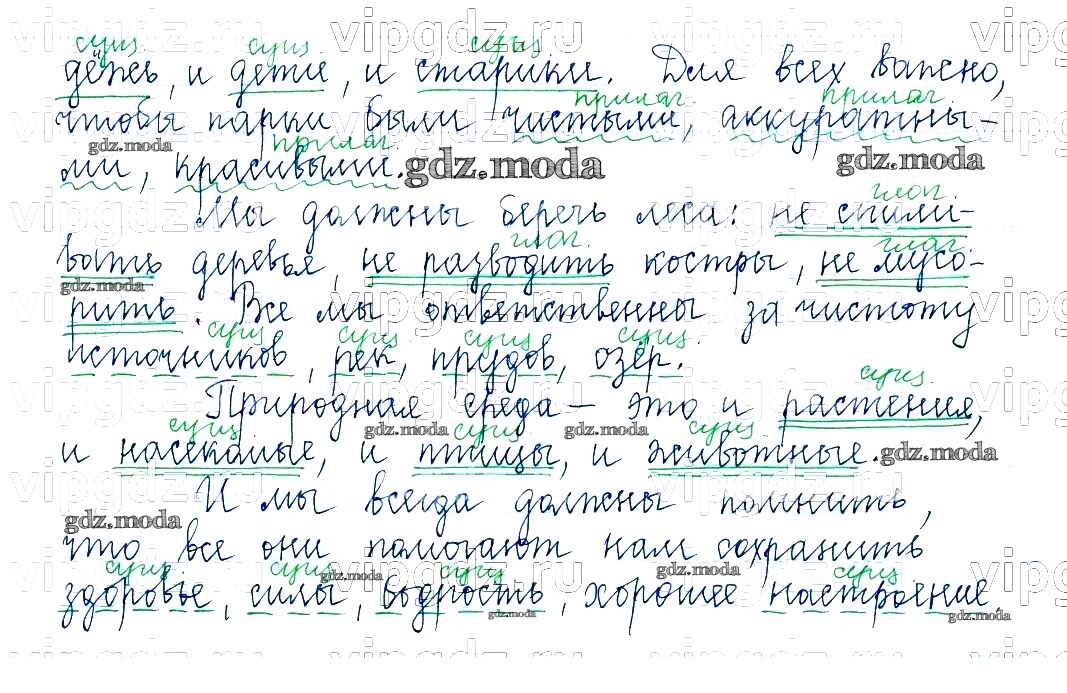 сущ. сущ. сущ.
дёжь, и дети, и старики. Для всех важно,
прилаг. прилаг.
чтобы парки были чистыми, аккуратны-
прилаг.
ми, красивыми.
глаг.
Мы должны беречь леса: не спили-
глаг. глаг.
вать деревья, не разводить костры, не мусо-
рить. Все мы ответственны за чистоту
сущ. сущ. сущ. сущ.
источников, рек, прудов, озёр.
сущ.
Природная среда – это и растения,
сущ. сущ. сущ.
и насекомые, и птицы, и животные.
И мы всегда должны помнить,
что все они помогают нам сохранить
сущ. сущ. сущ. сущ.
здоровье, силы, бодрость, хорошее настроение
vipgdz.ru
gdz.moda